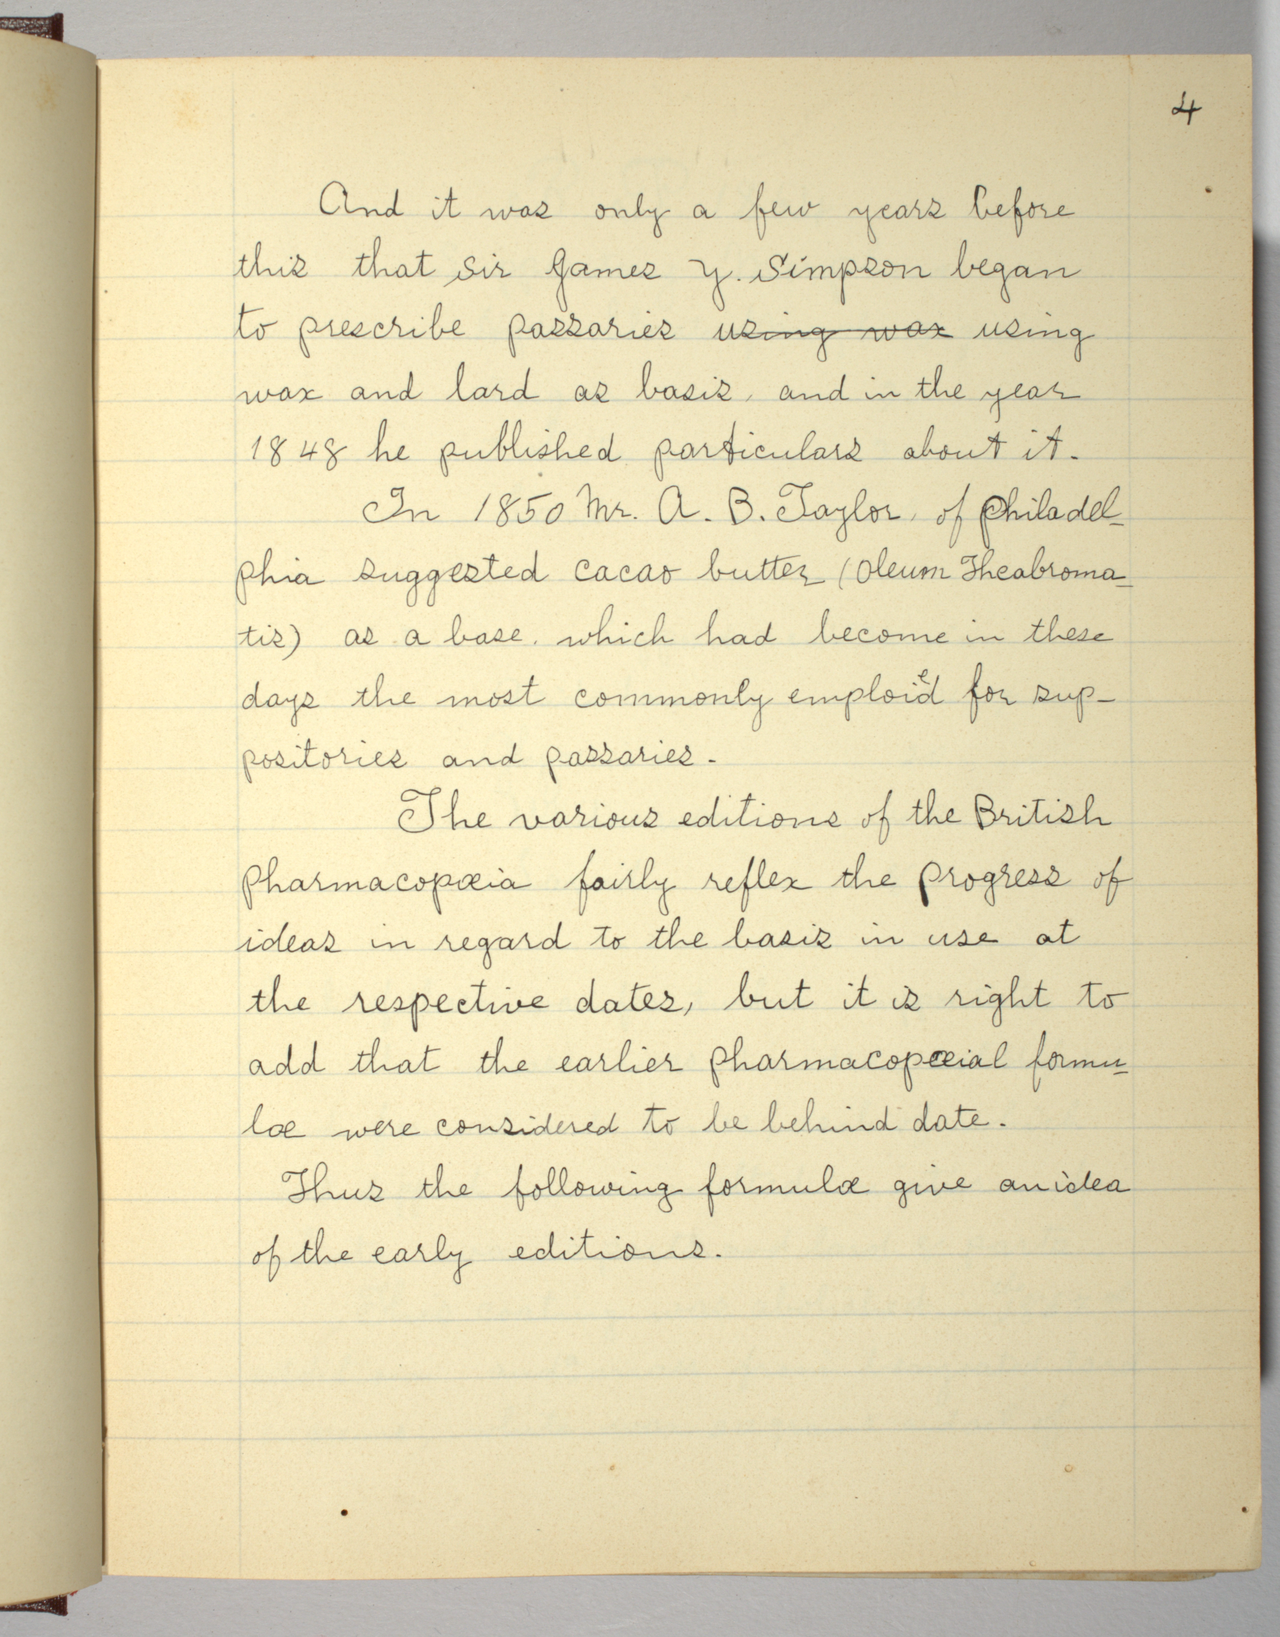 4
And it was only a few years before
this that Sir James Y. Simpson began
to prescribe passaries using wax using
wax and lard as basis, and in the year
1848 he published particulars about it.
In 1850 Mr. A. B. Taylor, of Philadel-
phia suggested cacao butter (Oleum Theabroma-
tis) as a base, which had become in these
days the most commonly emploied for sup-
positories and passaries.
The various editions of the British
Pharmacopœia fairly reflex the progress of
ideas in regard to the basis in use at
the respective dates, but it is right to
add that the earlier Pharmacopœial formu-
læ were considered to be behind date.
Thus the following formulæ give an idea
of the early editions.